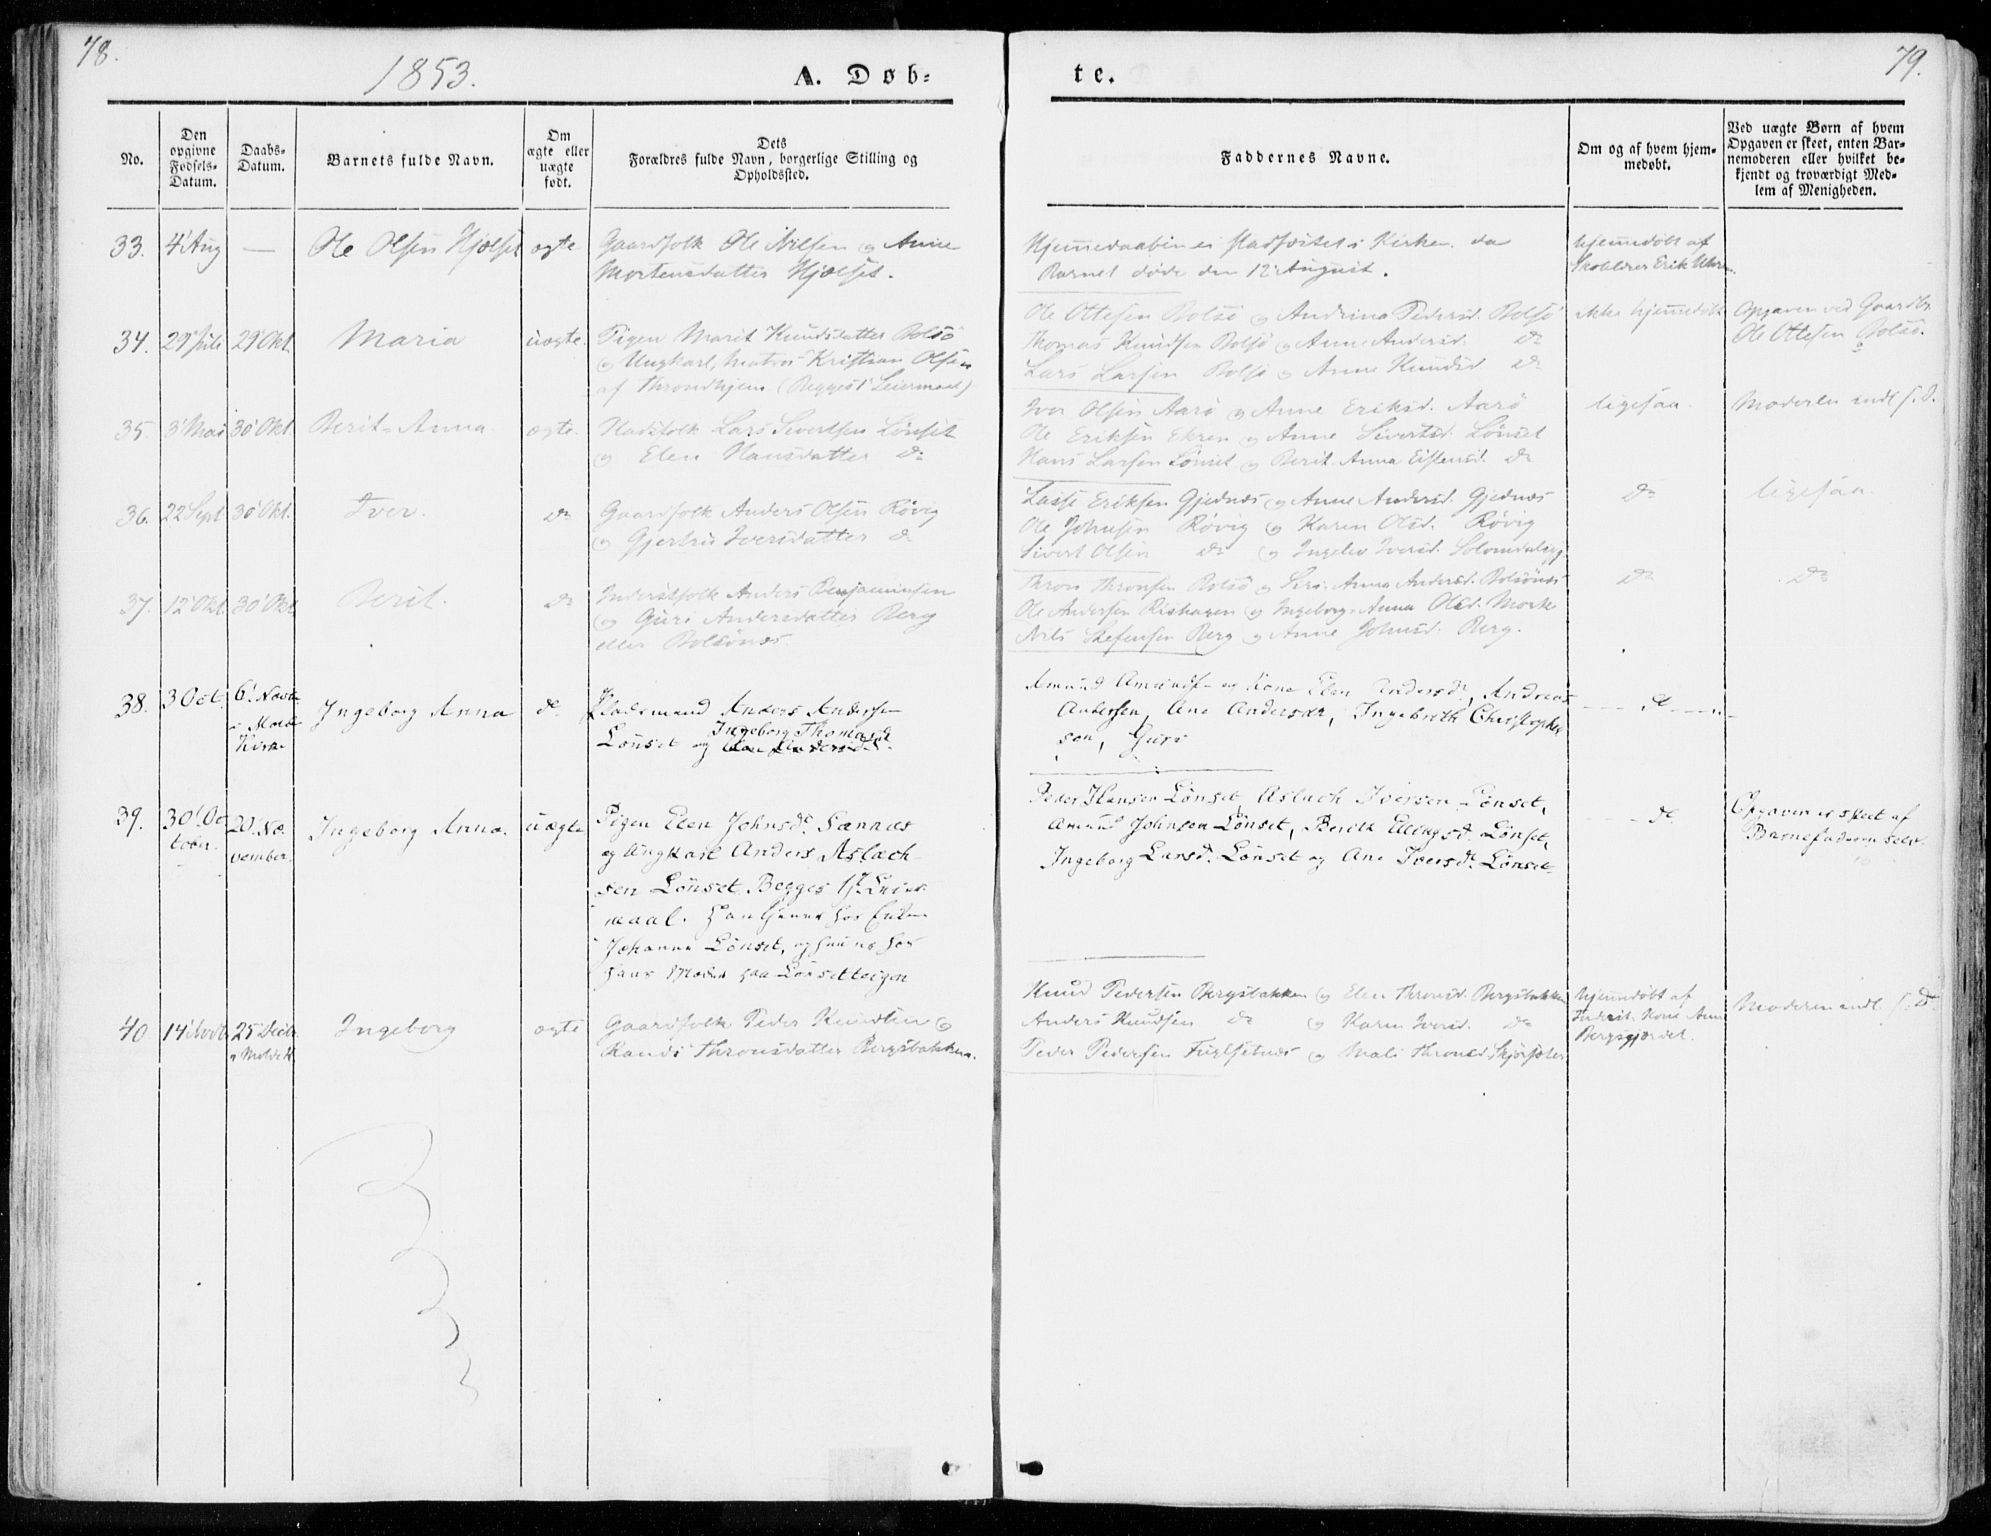 78.
1853.
A. Døb-
te.
79.
No.
Den opgivne Fødsels-Datum.
Daabs-Datum.
Barnets fulde Navn.
Om ægte eller uægte født.
Dets Forældres fulde Navn, borgerlige Stilling og Opholdssted.
Faddernes Navne.
Om og af hvem hjem-medøbt.
Ved uægte Børn af hvem Opgaven er skeet, enten Bar-nemoderen eller hvilket be-kjendt og troværdigt Med-lem af Menigheden.
33. 4' Aug — Ole Olsen Hjelset ægte
Gaardfolk Ole Nilsen og Anne
Mortensdatter Hjelset.
Hjemmedaaben ei stadfæstet i Kirken, da
Barnet døde den 12' August.
hjemmedøbt af
Skolelærer Erik
34. 29' Juli 29' Okt. Maria uægte.
Pigen Marit Knudsdatter Bolsø
og Ungkarl, Matros Kristian Olsen
af Throndhjem (Begges 1' Leiermaal)
Ole Ottesen Bolsø og Andrina Pedersd. Bolsø
Thomas Knudsen Bolsø og Anne Andersd. do
Lars Larsen Bolsø og Anne Knudsd. do
ikke hjemmedøbt
Opgaven ved Gaardbr.
Ole Ottesen Bolsø.
35. 3' Mai 30' Okt. Berit-Anna ægte.
Lars Sivertsen Lønset
og Elen Hansdatter do
Iver Olsen Aarø og Anne Eriksd. Aarø
Ole Eriksen Ekren og Anne Sivertsd. Lønset
Hans Larsen Lønset og Berit-Anna Eistensd. do
ligesaa.
Moderen indl. s. D.
36. 22 Sept 30' Okt. Iver. do
Gaardfolk Anders Olsen Røvig
og Gjertru Iversdatter do
Lasse Eriksen Gjednæs og Anne Andersd. Gjednæs
Ole Johnsen Røvig og Karen Olsd. Røvig
Sivert Olsen do og Ingelev Iversd.
do
ligesaa.
37. 12' Okt. 30' Okt. Berit. do
Inderstfolk Anders Benjaminsen
og Guri Andersdatter Berg
eller Bolsønæs.
Thron Thronsen Bolsø og Anna Andersd. Bolsønæs
Ole Andersen Rishagen og Ingeborg-Anna Olsd. Moek
Nils Stefensen Berg og Anne Johnsd. Berg.
do
do
38. 3 Oct. 6' Novbr
i Molde
Kirke
Ingeborg Anna do
Pladsmand Anders Andersen
Ingeborg Thomasd
Lønset og
Amund Amunds- og Kone Elen Andersdr, Andreas
Andersen, Ane Andersdr, Ingebreth Christopher
sen, Guri
do
39. 30' Oc
tober.
20. No
vember.
Ingeborg Anna. uægte
Pigen Elen Johnsdr. Sannæs
og Ungkarl Anders Aslach-
sen Lønset. Begges 1ste Leier-
maal. Han tjener hos Enken
Johanna Lønset, og hun er hos
hans Moder paa Lønsetteigen
Peder Hansen Lønset, Aslach Iversen Lønset,
Amund Johnsen Lønset, Berith Ellingsdr. Lønset,
Ingeborg Larsdr. Lønset og Ane Iversdr. Lønset
do
Opgaven er skeet af
Barnefaderen selv.
40 14' Novbr 25' Decbr
i Molde K
Ingeborg ægte
Gaardfolk Peder Knudsen og
Randi Thronsdatter Bergsbakken.
Knud Pedersen Bergsbakken og Elen Thronsd. Bergsbakken
Anders Knudsen do og Karen Iversd. do
Peder Pedersen Fuglsetnæs og Mali Thronsd. Skjørsæter
hjemmedøbt af
Inderst. Kone Ann
Bergsgjerdet.
Moderen indl. s. D.